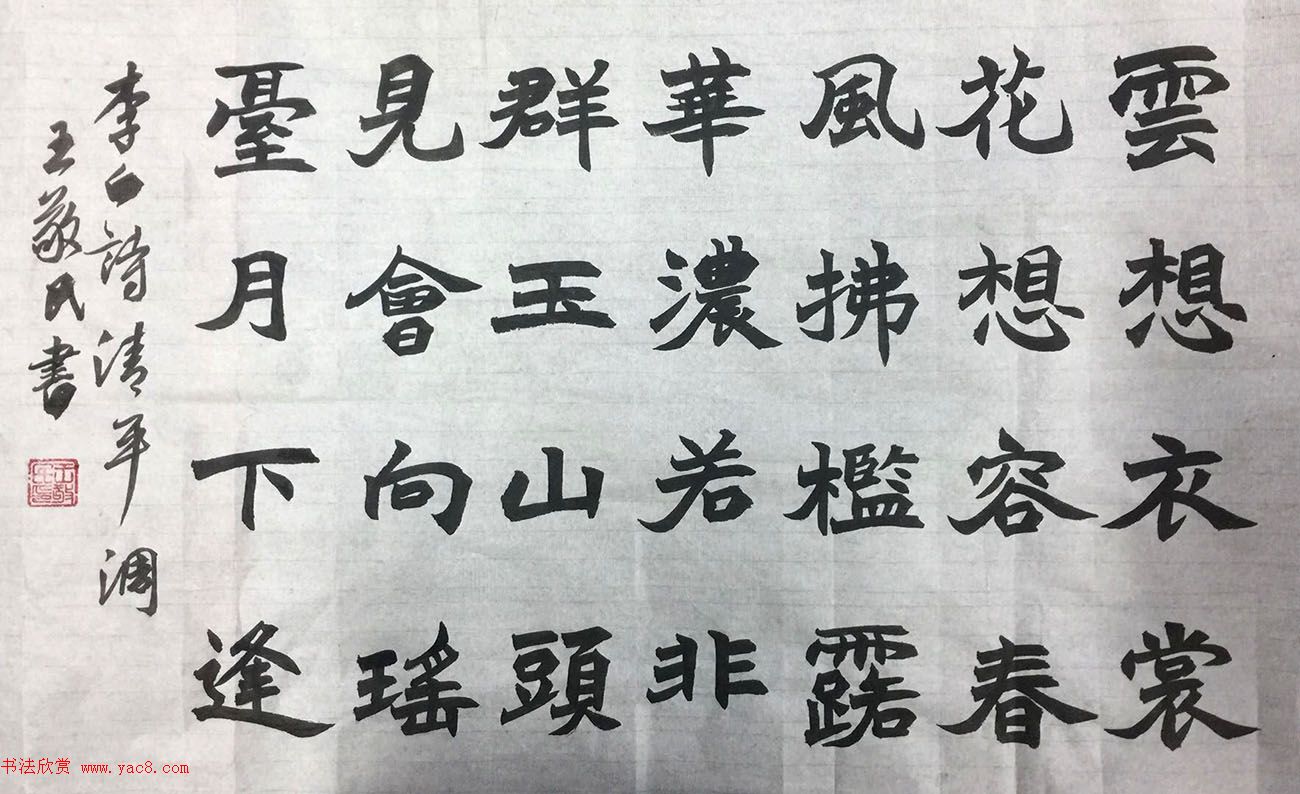 雲想衣裳
花想容春
風拂檻露
華濃若非
群玉山頭
見會向瑤
臺月下逢
李白詩清平調
王敬民書
王敬民印
书法欣赏 www.yac8.com